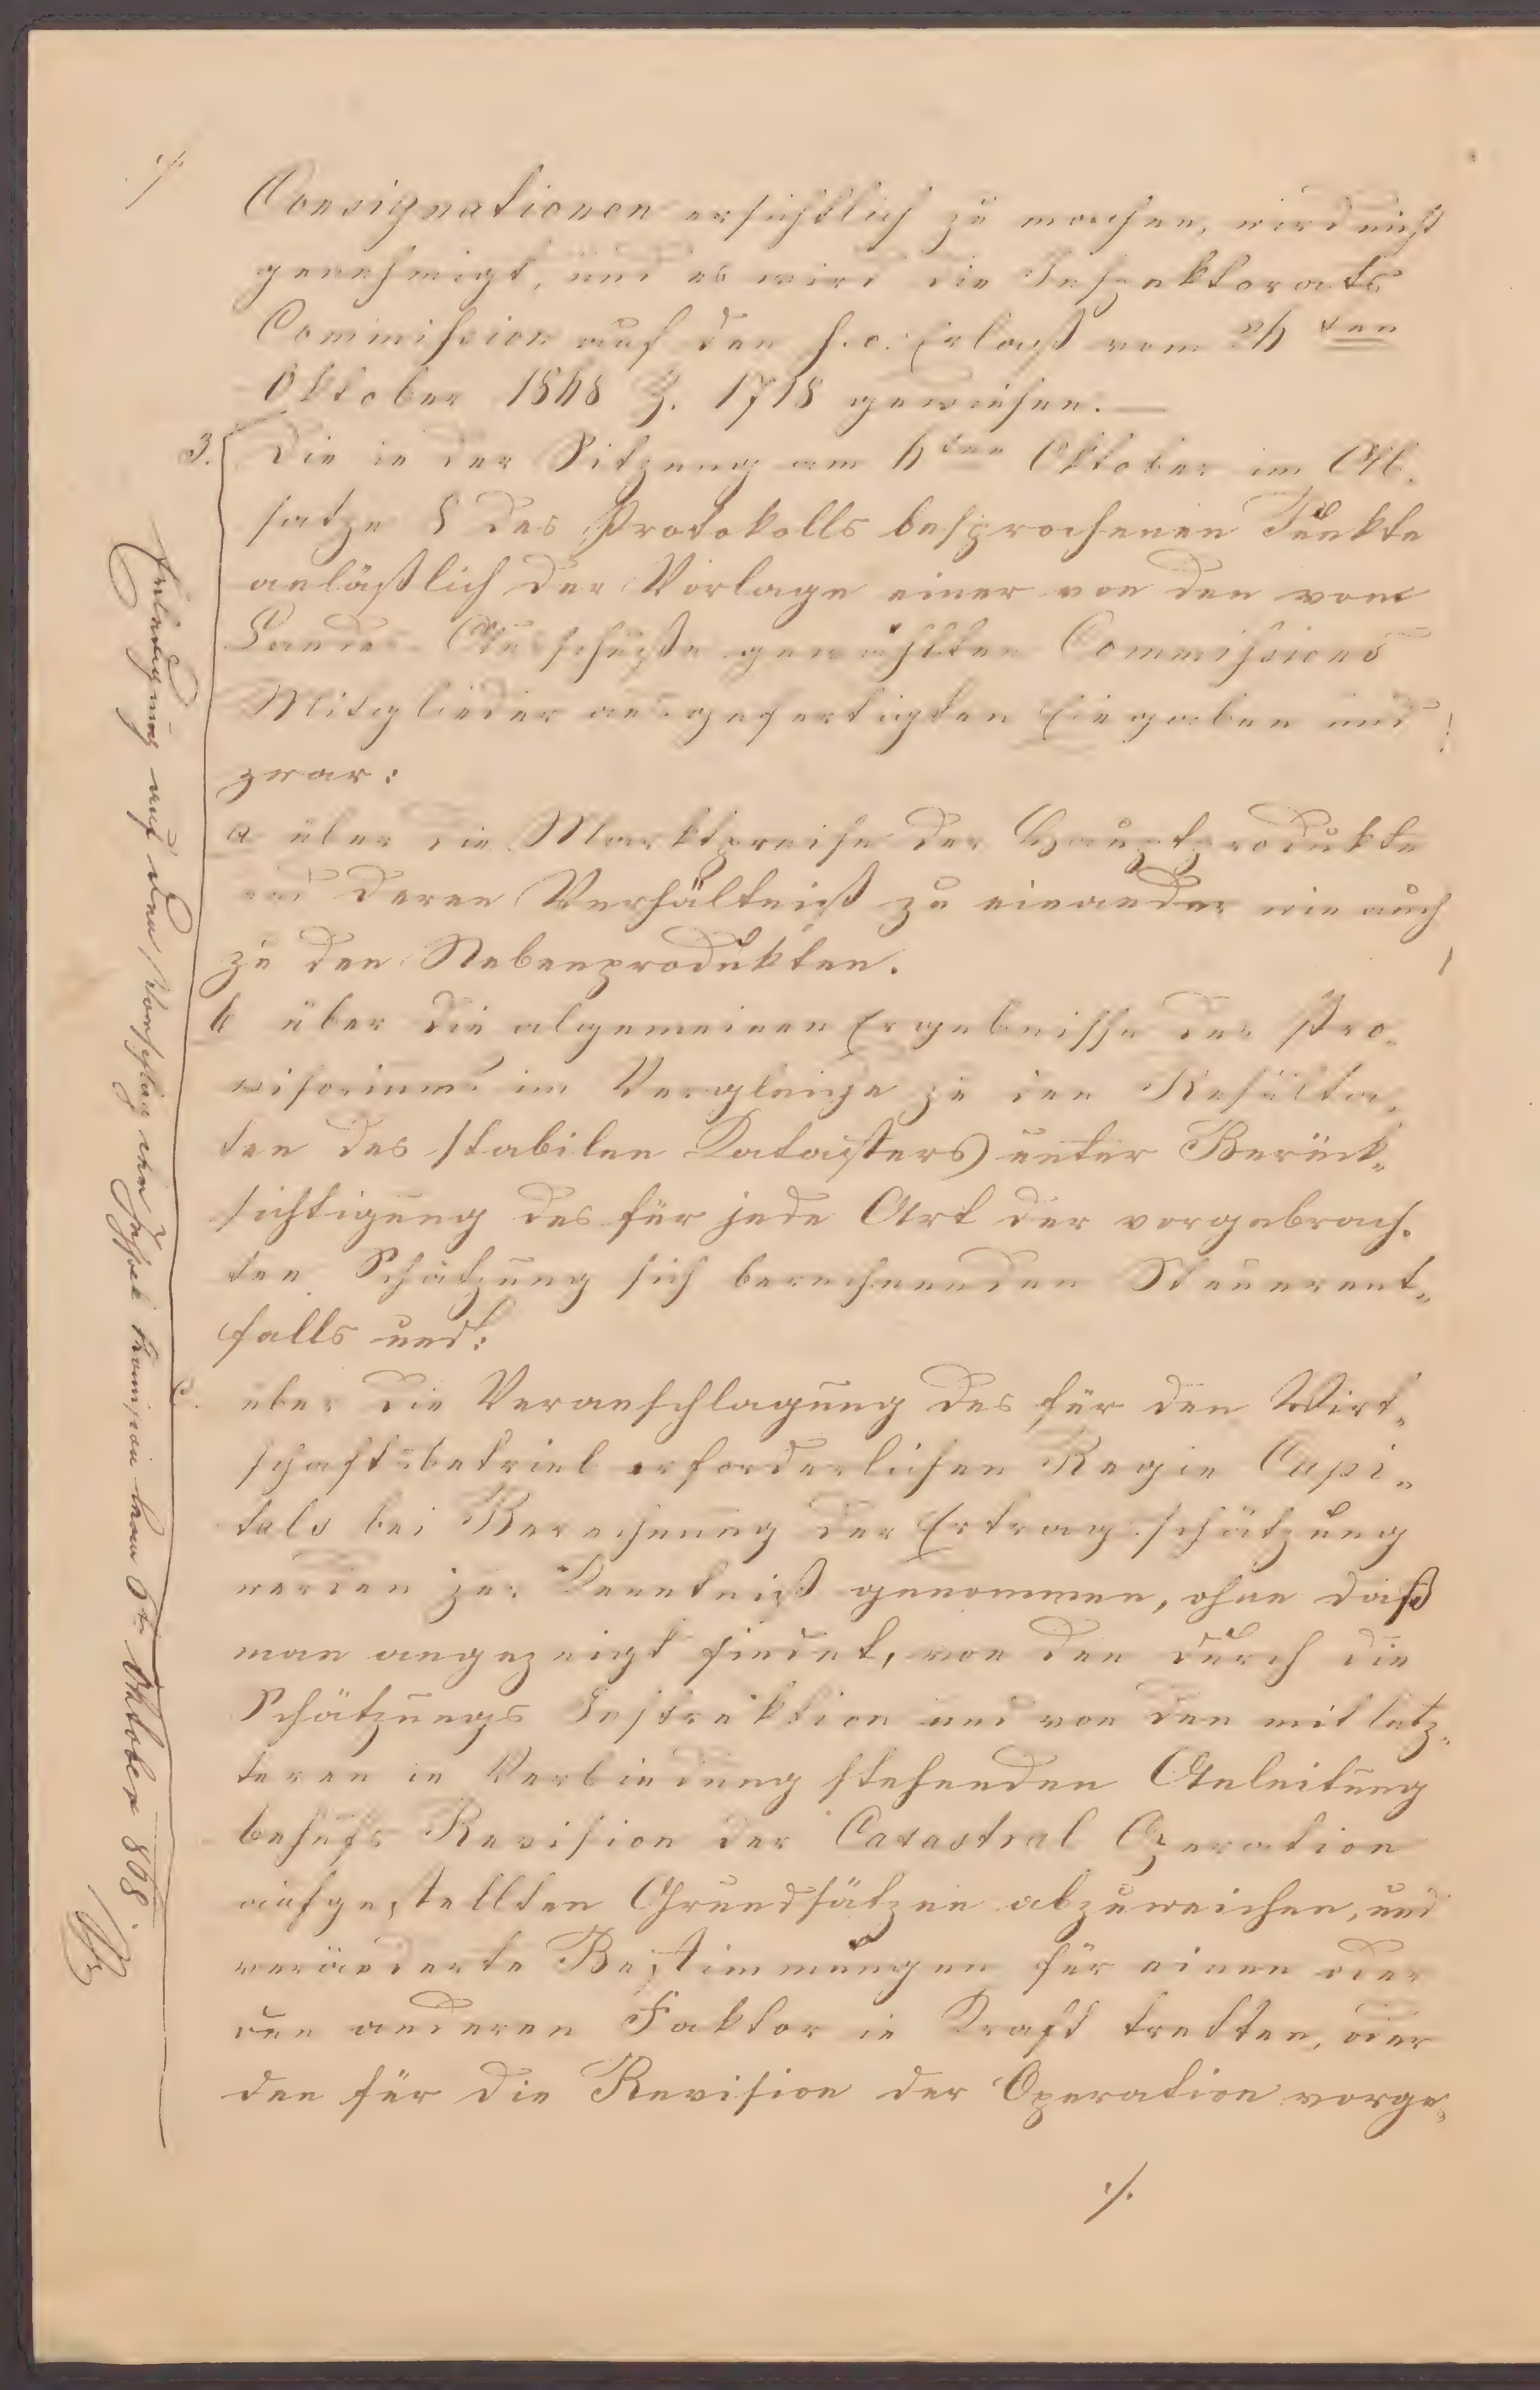 Consignationen ersichtlich zu machen, wird nicht
genehmigt, und es wird die Inspektorats
Commission auf den h.o. Erlaß vom
Oktober Z. 1718 gewiesen. —
3. Die in der Sitzung am Oktober im Ab-
satze des Protokolls besprochenen Punkte
anläßlich der Vorlage einer von den vom
Landes Ausschuße gewählten Commissions
Mitglieder ausgefertigten Eingaben und
zwar:
a über die Marktpreise der Hauptprodukte
und deren Verhältniß zu einander wie auch
zu den Nebenprodukten.
b über die algemeinen Ergebnisse des Pro-
visoriums im Vergleiche zu den Resulta-
ten des stabilen Katasters unter Berück-
sichtigung des für jede Art der vorgebrach-
ten Schätzung sich berechnenden Steuerent-
falls und:
c. über die Veranschlagung des für den Wirt-
schaftsbetrieb erforderlichen Regie Capi-
tals bei Berechnung der Ertragsschätzung
werden zur Kenntniß genommen, ohne daß
man angezeigt findet, von den durch die
Schätzungs Instruktion und von den mit letz-
teren in Verbindung stehenden Anleitung
behufs Revision der Catastral Operation
aufgestellten Grundsätzen abzuweichen, und
veränderte Bestimmungen für einen oder
den anderen Faktor in Kraft tretten, oder
den für die Revision der Operation vorge-
./.
Erledigung auf den Vorschlag der Inspek. vom 6t Oktober